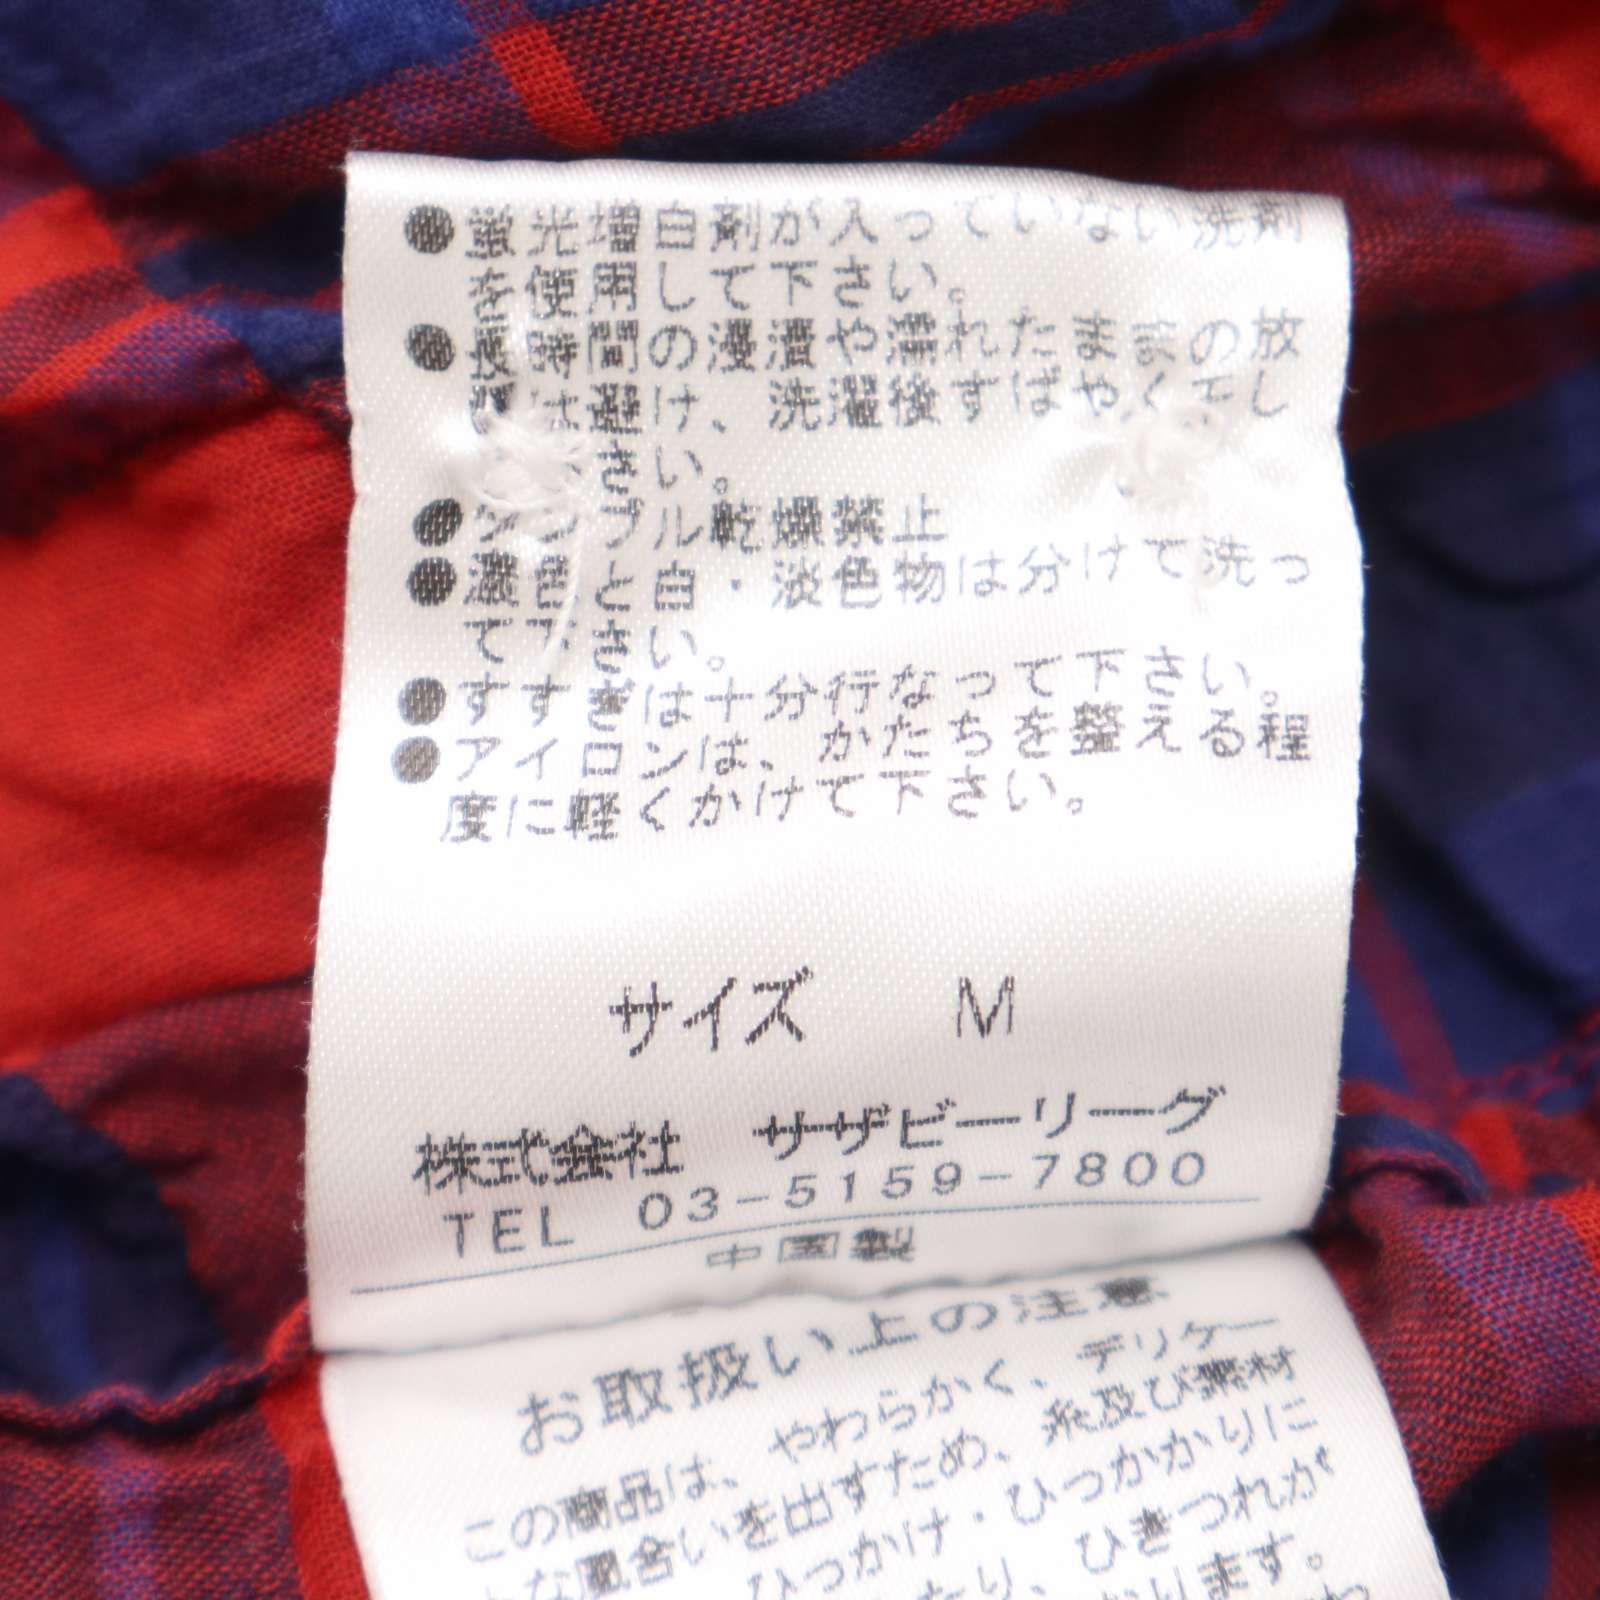 ●蛍光増白剤が入っていない洗剤
を使用して下さい。
●長時間の浸漬や濡れたままの放
置は避け、洗濯後すばやく干し
さい。
●タンブル乾燥禁止
●濃色と白・淡色物は分けて洗っ
て下さい。
●すすぎは十分行なって下さい。
●アイロンは、かたちを整える程
度に軽くかけて下さい。
サイズ M
株式会社 サザビーリーグ
TEL 03-5159-7800
中国製
お取扱い上の注意
この商品は、やわらかく、デリケー
な風合いを出すため、糸及び素材
ひっかけ・ひっかかりに
たり、ひきつれが
ります。